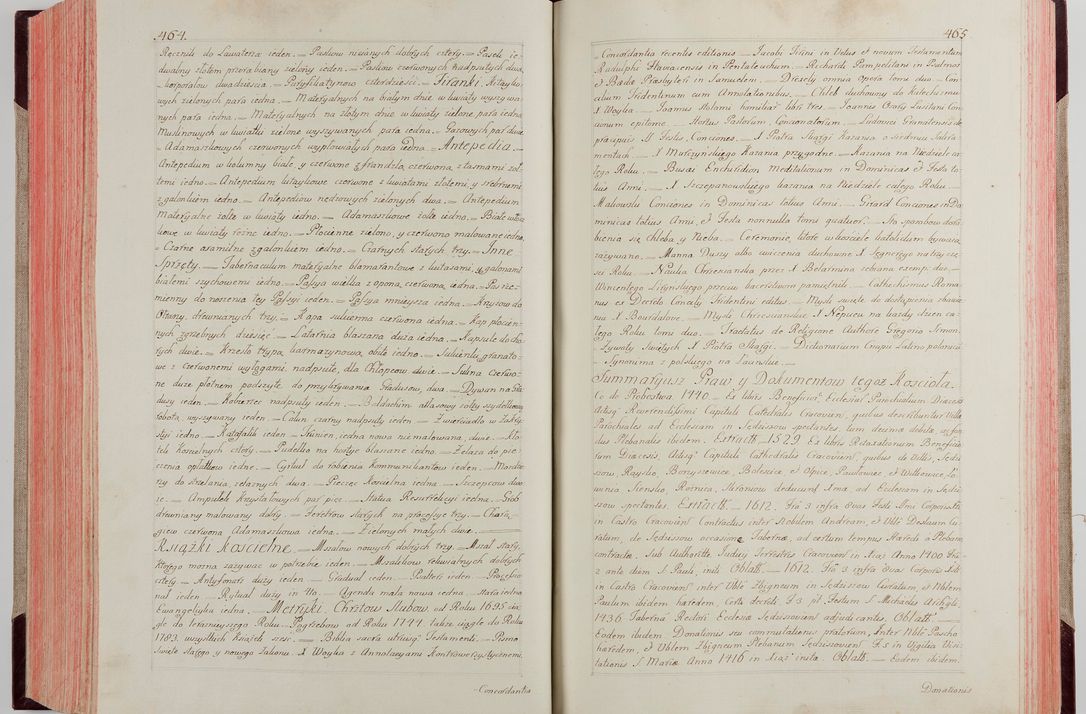 464.
Ręcznik do Lawaterza ieden. — Pasków nicianych dobrych cztery. — Pasek ie-
dwabny złotem przerabiany zielony ieden. — Pasków czerwonych nadpsutych dwa
— Korporałow dwadzieścia. — Puryfikatyrzow czterdzieści. — Firanki. Kitayko-
wych zielonych para iedna. — Materyalnych na białym dnie w kwiaty wyszywa
nych para iedna. — Materyalnych na złotym dnie w kwiaty zielone para iedna
Muslinowych w kwiatki zielone wyszywanych para iedna. — Gazowych par dwie
— Adamaszkowych czerwonych wypłowiałych para iedna. — Antepedia. —
Antepedium w kolumny białe y czerwone z frandzlą czerwoną, z tasmami zoł-
temi iedno. — Antepedium kitaykowe czerwone z kwiatami złotemi y srebrnemi
z galonkiem iedno. — Antepediow zielonych dwa. — Antepedium
materyalne żołte w kwiaty iedno. — Adamaszkowe żołte iedno. — Białe
kowe w kwiaty rożne iedno. — Płocienne zielono, y czerwono malowane iedno.
— Czarne axamitne z galonkiem iedno. — Czarnych starych trzy. — Inne
Sprzęty. — Tabernaculum materyalne blamarantowe z kutasami, y galonami
białemi szychowemi iedno. — Passya wielka z oponą czerwoną, iedna. — Pas rze-
mienny do noszenia tey Passyi ieden. — Passya mnieysza iedna. — Krzyżow do
drewnianych trzy. — Kapa sukienna czerwona iedna. — Kap płocien-
nych zgrzebnych dziesięć. — Latarnia blaszana duża iedna. — Kapsule do cho-
rych dwie. — Krzesło trypą karmazynową obite iedno. — Sukienki granato-
we z czerwonemi wyłogami, nadpsute, dla Chłopcow dwie. — Sukna czerwo-
ne duże płotnem podszyte do przykrywania Gradusow, dwa. — Dywan na Gra-
dusy ieden. — Kobierzec nadpsuty ieden. — Baldachim atłasowy żołty szydełkową
robotą, wyszywany ieden. — Całun czarny nadpsuty ieden. — Zwierciadło w Zakry-
styi iedno. — Katafalk ieden. — iedna nowa nie malowana, dwie. — Klę-
cieli Koscielnych cztery. — Pudełko na hostye blaszane iedno. — Zelaza do pie-
czenia opłatkow iedne. — Cyrkuł do robienia Kommunikantow ieden. — Mozdzie-
rzy do strzelania żelaznych dwa. — Pieczęć Koscielna iedna. — Szczepcow dwo
ie. — Ampułek Krzyształowych par pięć. — Statua Resurrekcyi iedna. — Grob
drewniany malowany dobry. — Feretrow starych na processye trzy. — Chorą-
giew czerwona Adamaszkowa iedna. — Zielonych małych dwie. —
Książki Koscielne. — Mszałow nowych dobrych trzy. — Mszał stary,
ktorego można zazywać w potrzebie ieden. — Mszalikow rekwialnych dobrych
cztery. — Antyfonarz duży ieden. — Graduał ieden. — Psałterz ieden. — Processyo-
nał ieden. — Rytuał duży in 4to. — Agenda mała nowa iedna. — stara iedna
Ewangeliyka iedna. — Metryki. Chrztow Slubow, od Roku 1695 cią-
gle do teraznieyszego Roku. — Pogrzebow od Roku 1744. także ciągle do Roku
1793. wszystkich Książek szesć. — Biblia sacra utriusq Testamenti. — Pismo
Swięte starego y nowego Zakonu X Woyka z Annotacyami Kontrowerzystycznemi.
— Concordantia
465
Concordantia recentis editionis. — Jacobi Tirini in Vetus et novum Testamentum
Radulphi Flavacensis in Pentateuchum. — Richardi Pampelitani in Psalmos
et Bedæ Præsbyteri in Samuelem. — Drexely omnia Opera tomi duo. — Con-
cilium Tridentinum cum Annotationibus. — Chleb duchowny do Katechizmu
X Woyka. — Joannis Molani familiar libri tres. — Joannis Osorij Lusitani Con-
cionum epitome. — Hortus Pastorum, Concionatorum. — Ludovici Granatensis de
præcipuis SS Festis Conciones. — X Piotra Skargi Kazania o siedmiu Sakra-
mentach. — X Młodzyńskiego Kazania przygodne. — Kazania na Niedziele ca-
łego Roku. — Busæi Enchiridion Meditationum in Dominicas et Festa to-
tius Anni. — X Szczepanowskiego kazania na Niedziele całego Roku. —
Makowski Conciones in Dominicas totius Anni. — Girard Conciones in Do-
minicas totius Anni, et Festa nonnulla tomi quatuor. — In sposobow doro-
bienia się chleba, y Nieba. — Ceremonie, ktore w kosciele katolickim bywaią
zazywano. — Manna Duszy albo cwiczenia duchowne X Segnerego na trzy czę-
sci Roku. — Nauka Chrześcianska przez X Bellarmina zebrana exempl. duo. —
Wincentego Liryńskiego przeciw kacerstwom pamiętnik. — Cathechismus Roma-
nus ex Decreto Concily Tridentini editus. — Mysli swięte do dostąpienia zbawie-
nia X Bourdalowe. — Mysli Chrzescianskie X Nepueu na kazdy dzien ca-
łego Roku tomi duo. — Tractatus de Religione Authore Gregorio Simon.
— Zywoty Swiętych X Piotra Skargi. — Dictionarium Cnapii Latino polonicum
— Synonima z polskiego na Łacinskie. —
Summaryusz Praw y Dokumentow tegoż Kościoła.
Co do Probostwa 1440. — Ex libris Beneficior Ecclesiar Parochialium Dioecesis
Adisq Reverendissimi Capituli Catedralis Cracoviens, quibus describuntur Villæ
Parochiales ad Ecclesiam in Jedrszow spectantes, tum decima debita, ac fun-
dus Plebanalis ibidem. Extractt. — 1529. Ex libris Retaxationum Beneficio-
rum Dioecesis, Adisq Capituli Cathedralis Cracoviens, quibus de Villis, Jedr-
szow, Rayško, Borzyszewice, Bolescice, et Opice, Pawlowice, et Witkowice, Lo-
winia Siensko, Roznica, Mironiow deducunt Xma, ad Ecclesiam in Jedrz-
szow spectantes. Extractt. — 1612. Fra 3 infra Octas Festi Smi Corporis Xti
in Castro Cracoviens Contractus inter Nobilem Andream, et Vble Deslaum Cu-
ratum, de Jedrszow occasione Tabernæ, ad certum tempus Haeredi a Plebano
contractæ. Sub Authoritte Judicy Terrestris Cracoviens in Xiąż Anno 1400. Fra
2 ante diem S. Pauli, initi Oblatt. — 1612. Fra 3 infra Octas Corporis Xsti
in Castro Cracoviens inter Vble Zbigneum in Jedrszow Curatum, et Nblem
Paulum ibidem haredem, Certi decreti, F 3 pt Festum S. Michaelis Archgli.
1436 Taberna Rectori Ecclesiæ Jedrszoviens adjudicantis. Oblatt. —
Eodem ibidem. Donationis seu commutationis pratorum, Inter Nble Pascho
haredem, et Vblem Zbigneum Plebanum Jedrszoviens F 5 in Vigilia Visi-
tationis S. Mariæ Anno 1416 in Xiąż inita. Oblatt. — Eodem ibidem.
Donationis